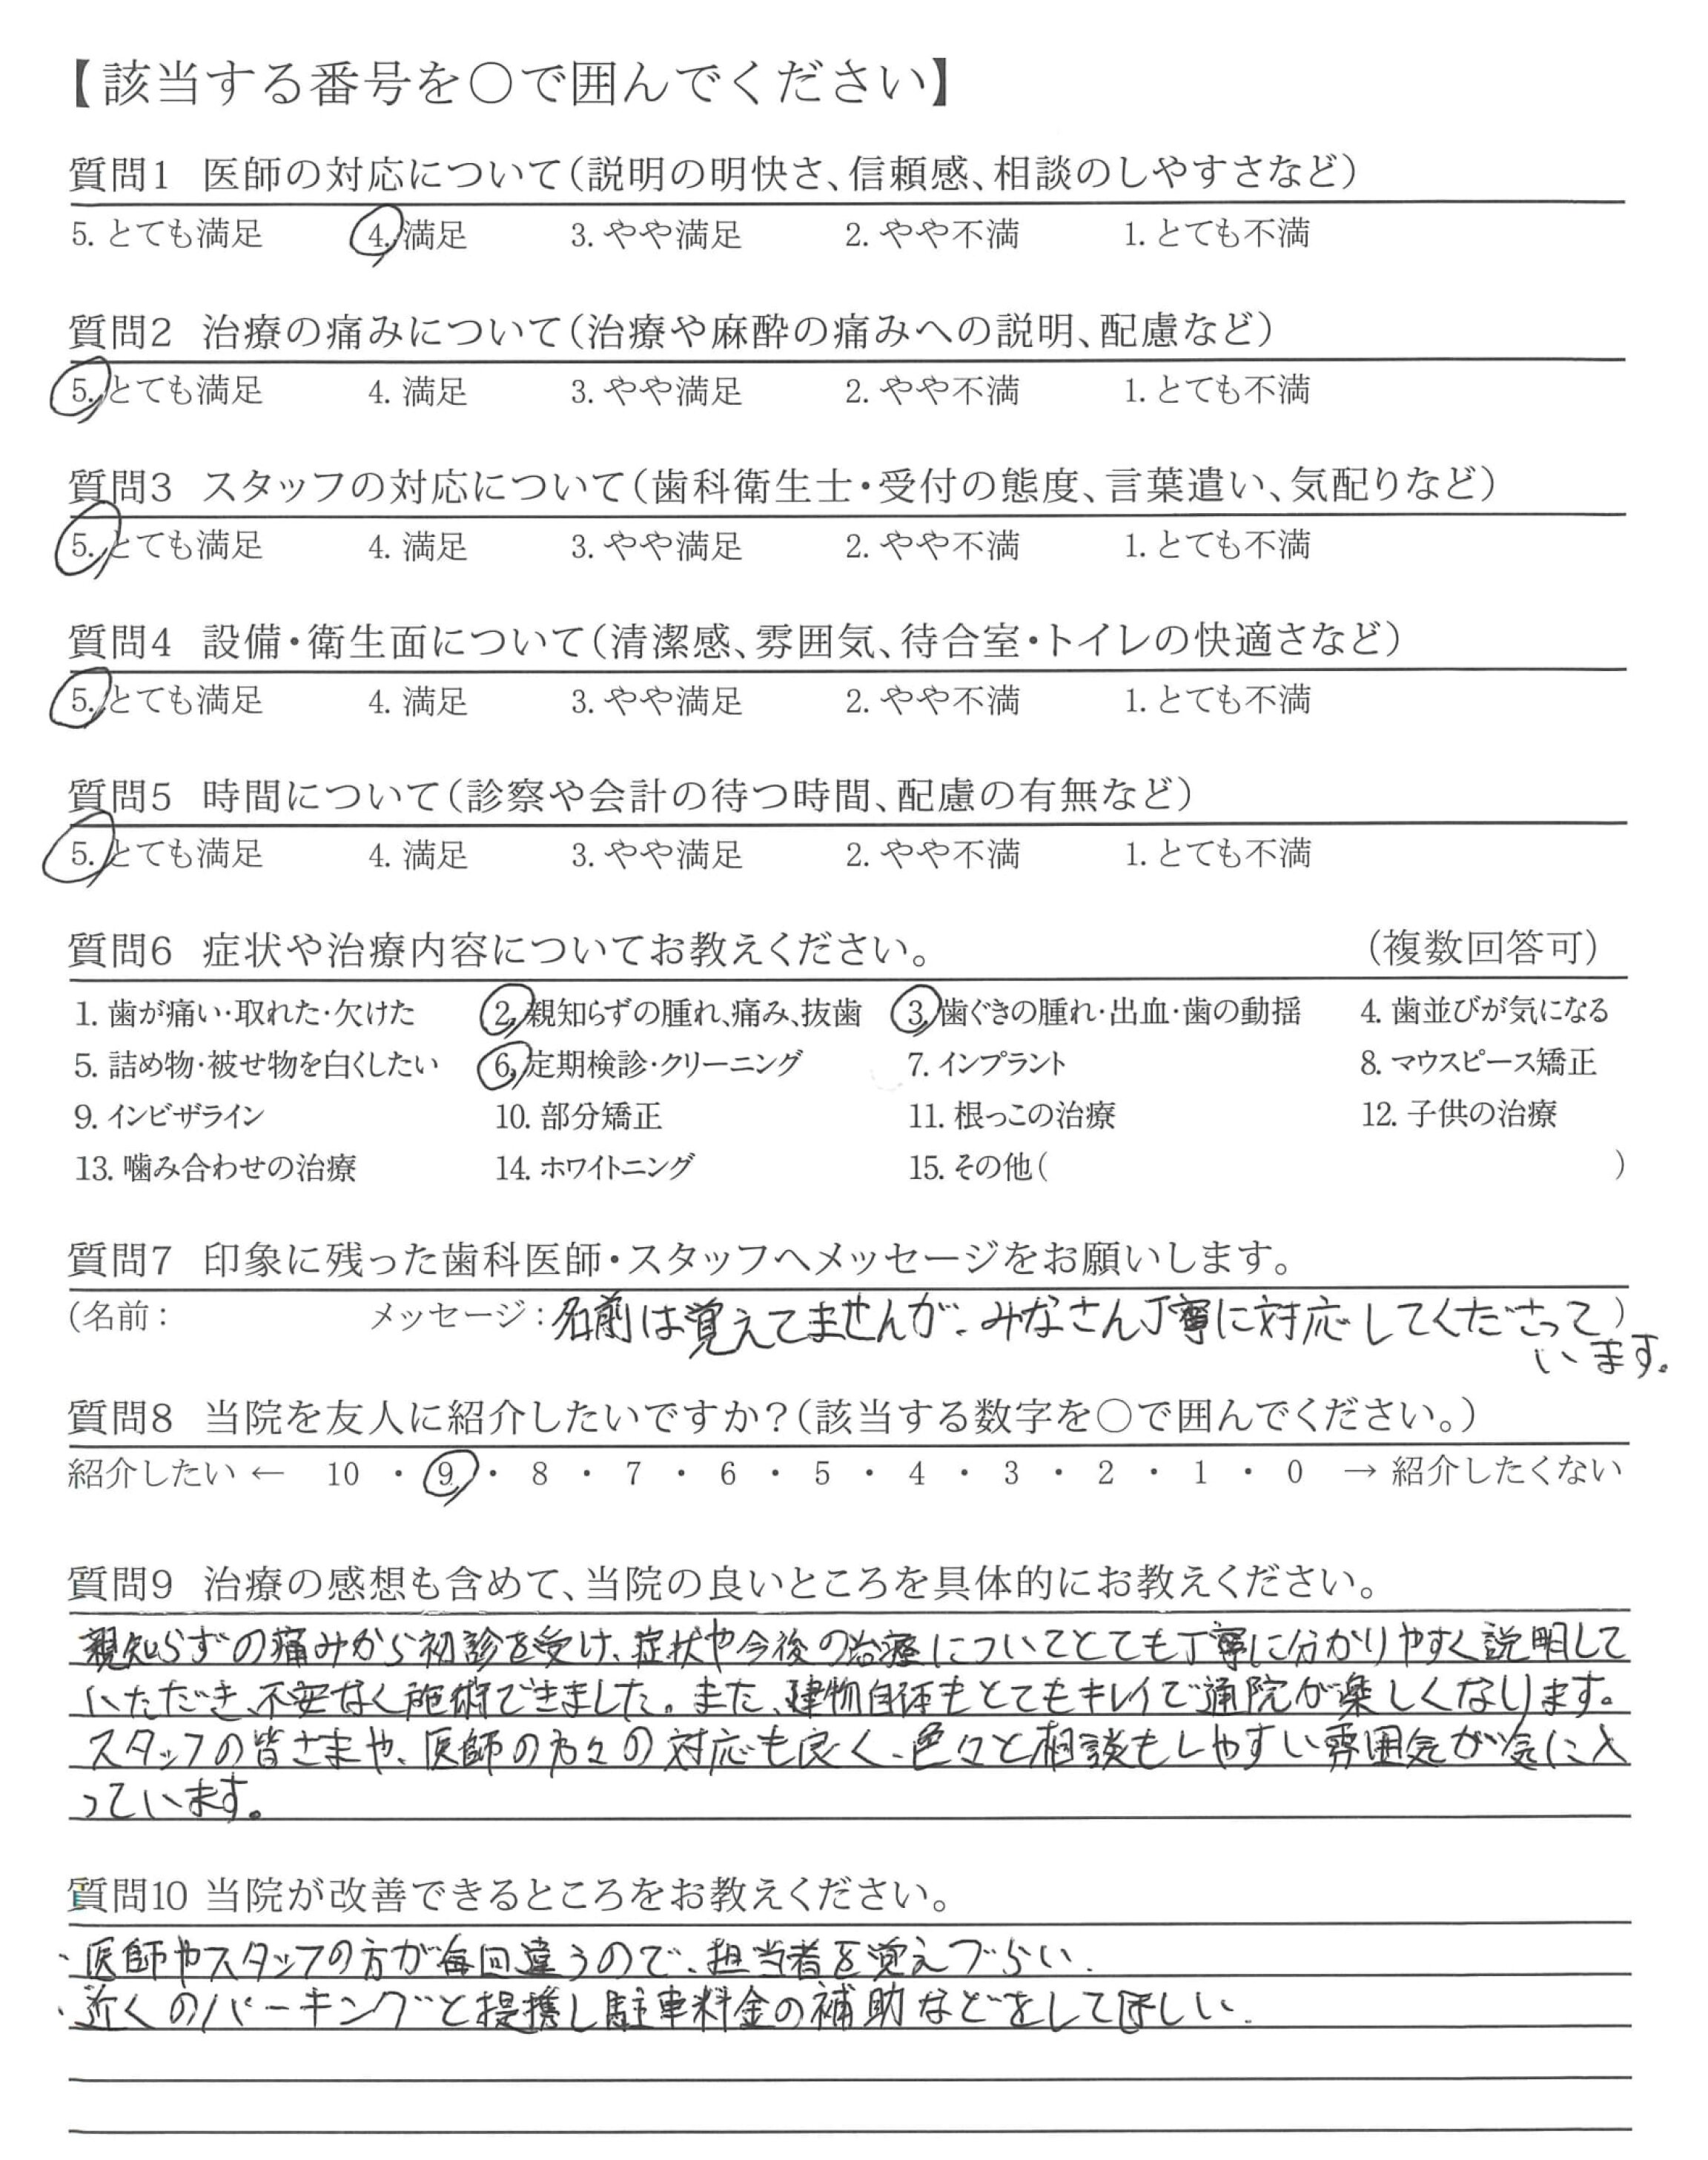 【該当する番号を〇で囲んでください】
質問1 医師の対応について（説明の明快さ、信頼感、相談のしやすさなど）
5. とても満足 4. 満足 3. やや満足 2. やや不満 1. とても不満
質問2 治療の痛みについて（治療や麻酔の痛みへの説明、配慮など）
5. とても満足 4. 満足 3. やや満足 2. やや不満 1. とても不満
質問3 スタッフの対応について（歯科衛生士・受付の態度、言葉遣い、気配りなど）
5. とても満足 4. 満足 3. やや満足 2. やや不満 1. とても不満
質問4 設備・衛生面について（清潔感、雰囲気、待合室・トイレの快適さなど）
5. とても満足 4. 満足 3. やや満足 2. やや不満 1. とても不満
質問5 時間について（診察や会計の待つ時間、配慮の有無など）
5. とても満足 4. 満足 3. やや満足 2. やや不満 1. とても不満
質問6 症状や治療内容についてお教えください。 （複数回答可）
1. 歯が痛い・取れた・欠けた 2. 親知らずの腫れ、痛み、抜歯 3. 歯ぐきの腫れ・出血・歯の動揺 4. 歯並びが気になる
5. 詰め物・被せ物を白くしたい 6. 定期検診・クリーニング 7. インプラント 8. マウスピース矯正
9. インビザライン 10. 部分矯正 11. 根っこの治療 12. 子供の治療
13. 噛み合わせの治療 14. ホワイトニング 15. その他（ ）
質問7 印象に残った歯科医師・スタッフへメッセージをお願いします。
（名前： メッセージ：名前は覚えてませんが、みなさん丁寧に対応してくださって）
います。
質問8 当院を友人に紹介したいですか？（該当する数字を〇で囲んでください。）
紹介したい ← 10 ・ 9 ・ 8 ・ 7 ・ 6 ・ 5 ・ 4 ・ 3 ・ 2 ・ 1 ・ 0 → 紹介したくない
質問9 治療の感想も含めて、当院の良いところを具体的にお教えください。
親知らずの痛みから初診を受け、症状や今後の治療についてとても丁寧に分かりやすく説明して
いただき、不安なく施術できました。また、建物自体もとてもキレイで通院が楽しくなります。
スタッフの皆さまや、医師の方々の対応も良く、色々と相談もしやすい雰囲気が気に入
っています。
質問10 当院が改善できるところをお教えください。
・医師やスタッフの方が毎回違うので、担当者を覚えづらい.
・近くのパーキングと提携し駐車料金の補助などをしてほしい.